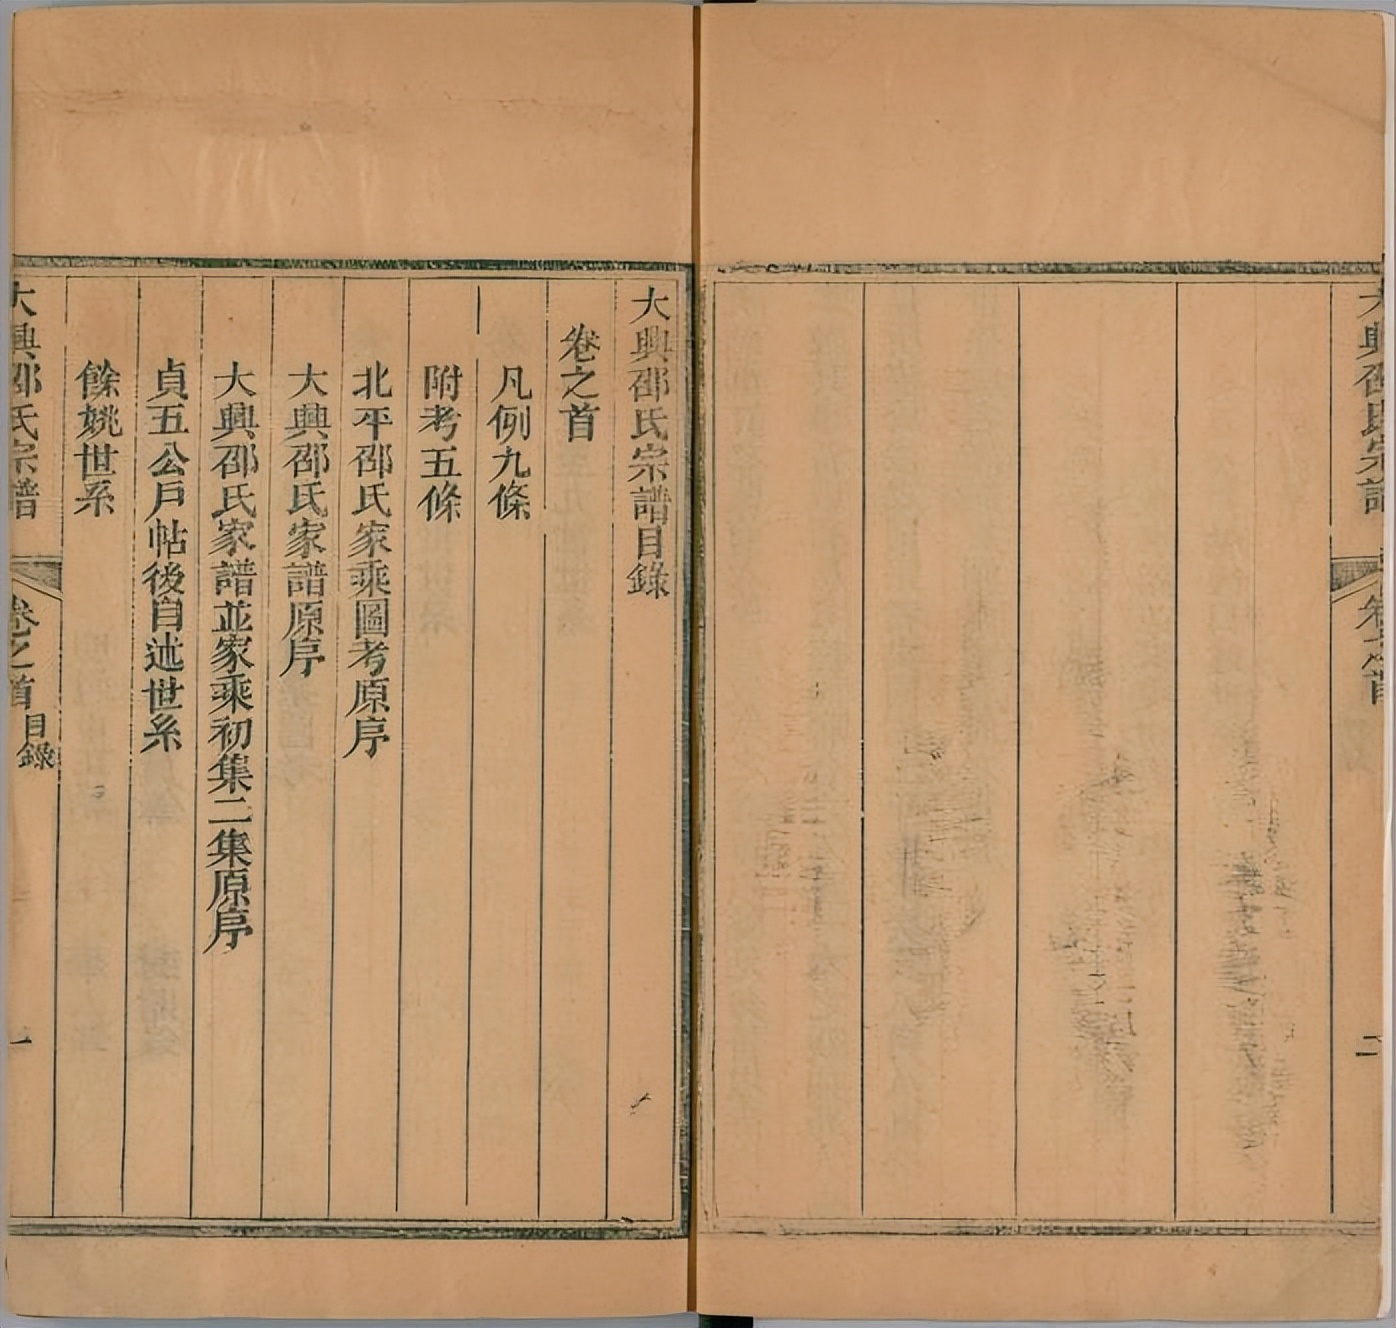 大興邵氏宗譜
卷之首
二
大興邵氏宗譜目錄
卷之首
凡例九條
附考五條
北平邵氏家乘圖考原序
大興邵氏家譜原序
大興邵氏家譜並家乘初集二集原序
貞五公戶帖後自述世系
餘姚世系
大興邵氏宗譜
卷之首
目錄
一